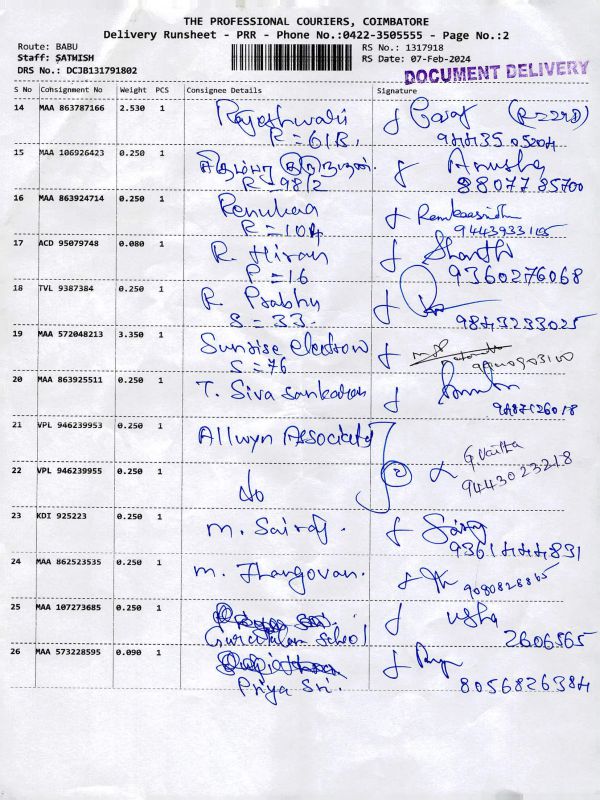 THE PROFESSIONAL COURIERS, COIMBATORE
Delivery Runsheet - PRR - Phone No.:0422-3505555 - Page No.:2
Route: BABU
Staff: SATWISH
DRS No.: DCJB131791802
RS No.: 1317918
RS Date: 07-Feb-2024
DOCUMENT DELIVERY
S No Consignment No Weight PCS Consignee Details Signature
14 MAA 863787166 2.530 1 Rajeshwari
R=61B. 94435 05204
15 MAA 106926423 0.250 1 Anusha
R=98/2 88077 85700
16 MAA 863924714 0.250 1 Renukaa
R=104
17 ACD 95079748 0.080 1 R. Hiran Shanthi
P=16 9360276068
18 TVL 9387384 0.250 1 R. Prabhu
S=33. 9843233025
19 MAA 572048213 3.350 1 Sunrise electron
S=76
20 MAA 863925511 0.250 1 T. Siva Sankaran
21 VPL 946239953 0.250 1 Allwyn Associates
22 VPL 946239955 0.250 1 do 2
9443023218
23 KDI 925223 0.250 1 M. Sairaj.
9361444831
24 MAA 862523535 0.250 1 M. Thangovan.
9080828865
25 MAA 107273685 0.250 1 usha
School 2606565
26 MAA 573228595 0.090 1
Priya Sri. 8056826384